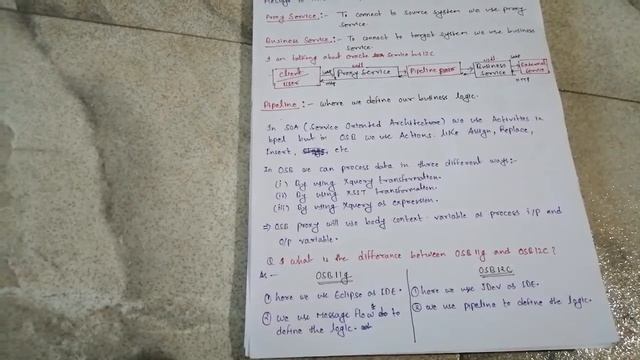 Message to
Proxy Service :- To connect to source system we use proxy
service.
Business Service :- To connect to target system we use business
service.
I am talking about oracle service bus 12C
Client
User
Proxy Service
Pipeline
Business
Service
External
Service
Pipeline :- where we define our business logic.
In SOA (Service Oriented Architecture) we use Activities in
bpel but in OSB we use Actions. like Assign, Replace,
Insert, etc
In OSB we can process data in three different ways:-
(i) By using Xquery transformation.
(ii) By using XSLT transformation.
(iii) By using Xquery as expression.
⇒ OSB proxy will use body context variable as process i/p and
o/p variable.
Q.1 what is the difference between OSB 11g and OSB 12C?
OSB 11g
① here we use Eclipse as IDE.
② we use Message Flow to
define the logic.
OSB 12C
① here we use JDev as IDE.
② we use pipeline to define the logic.